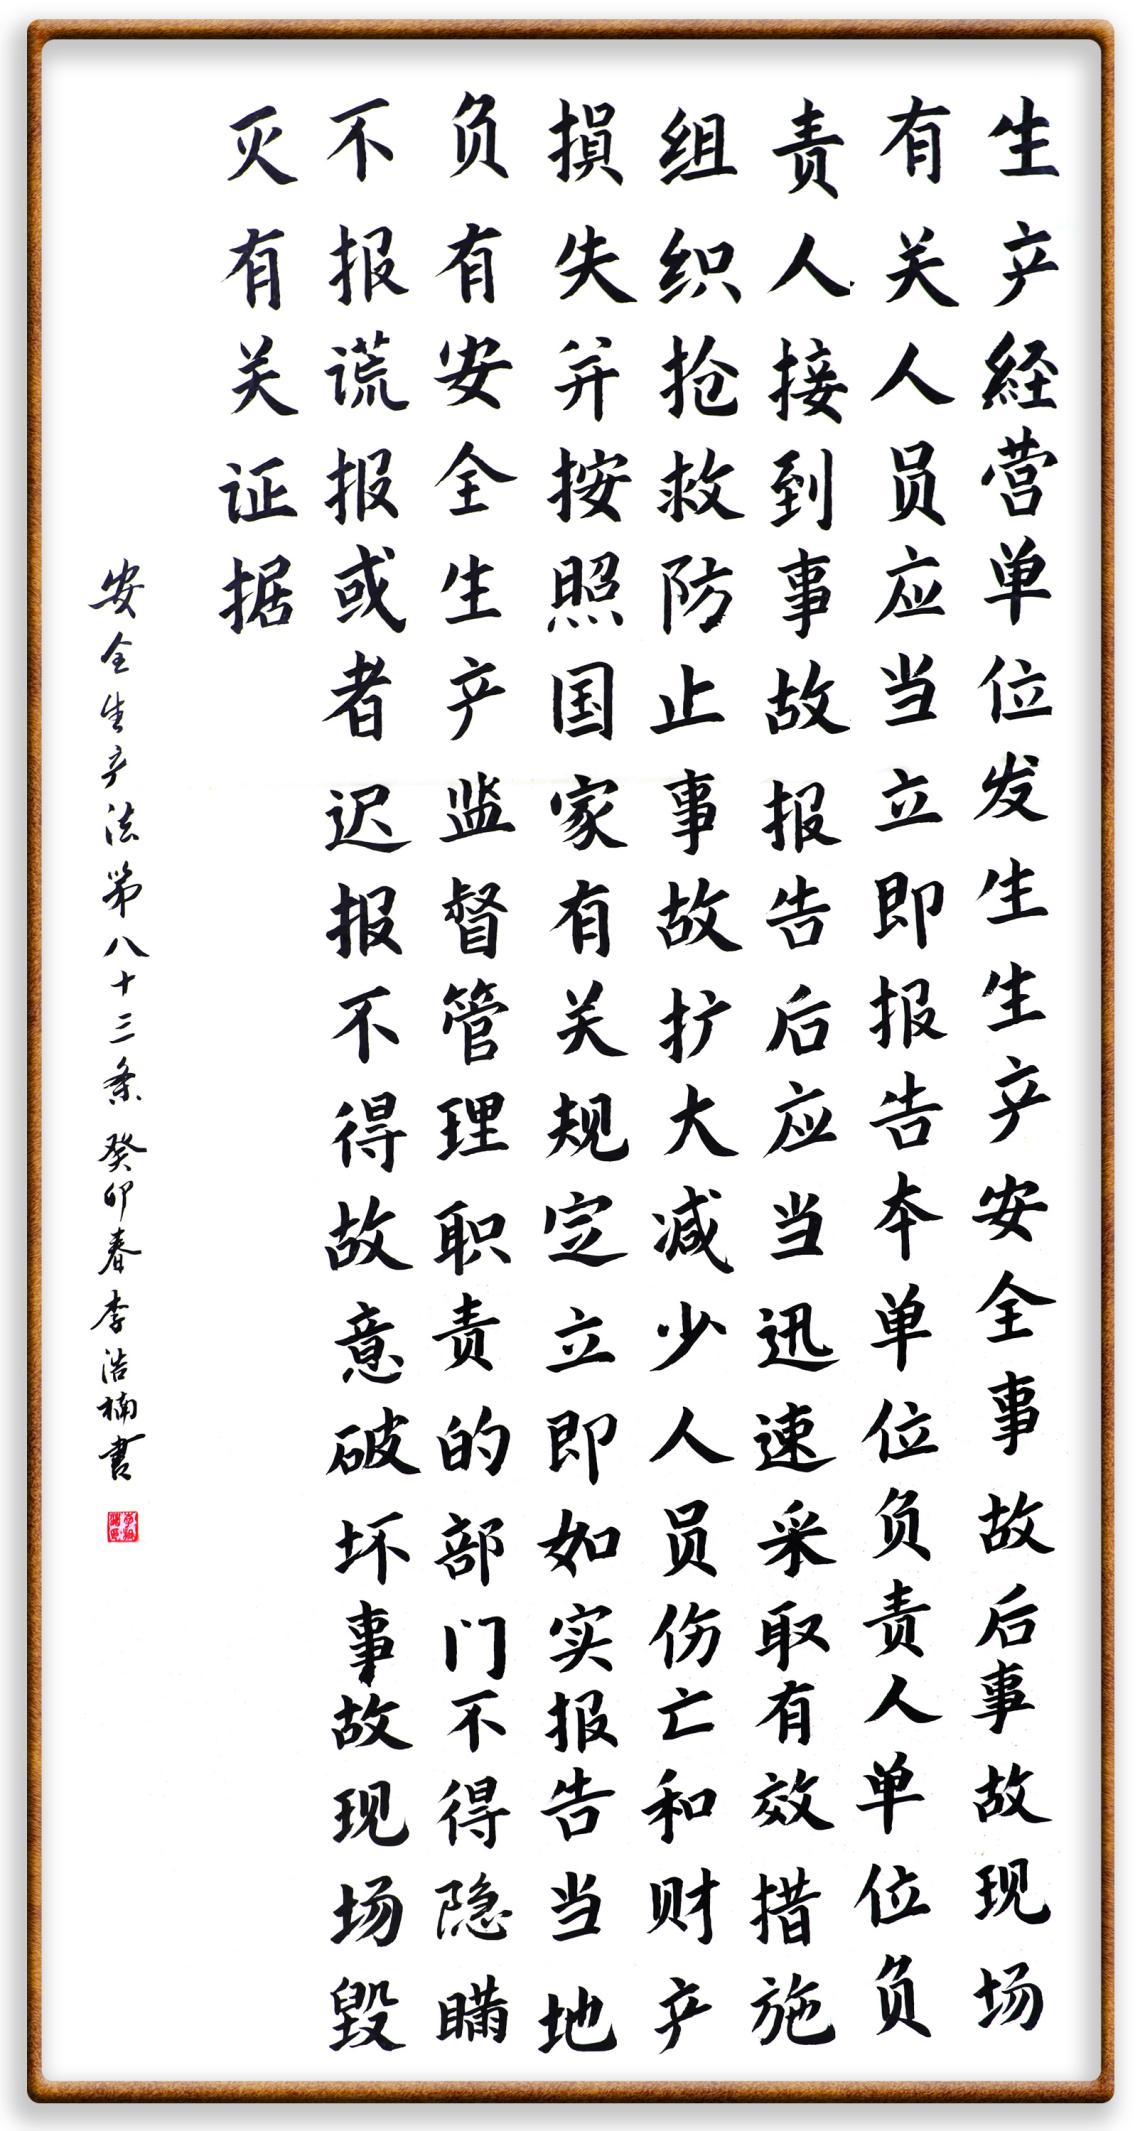 生产経营单位发生生产安全事故后事故现场
有关人员应当立即报告本单位负责人单位负
责人接到事故报告后应当迅速采取有效措施
组织抢救防止事故扩大减少人员伤亡和财产
損失并按照国家有关规定立即如实报告当地
负有安全生产监督管理职责的部门不得隐瞒
不报谎报或者迟报不得故意破坏事故现场毁
灭有关证据
安全生产法第八十三条 癸卯春李浩楠書